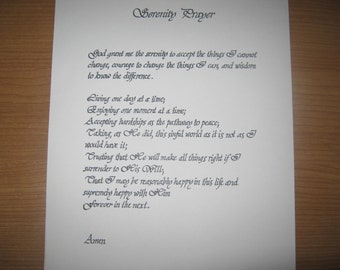 Serenity Prayer
God grant me the serenity to accept the things I cannot
change, courage to change the things I can, and wisdom
to know the difference.
Living one day at a time;
Enjoying one moment at a time;
Accepting hardships as the pathway to peace;
Taking, as He did, this sinful world as it is not as I
would have it;
Trusting that He will make all things right if I
surrender to His Will;
That I may be reasonably happy in this life and
supremely happy with Him
Forever in the next.
Amen